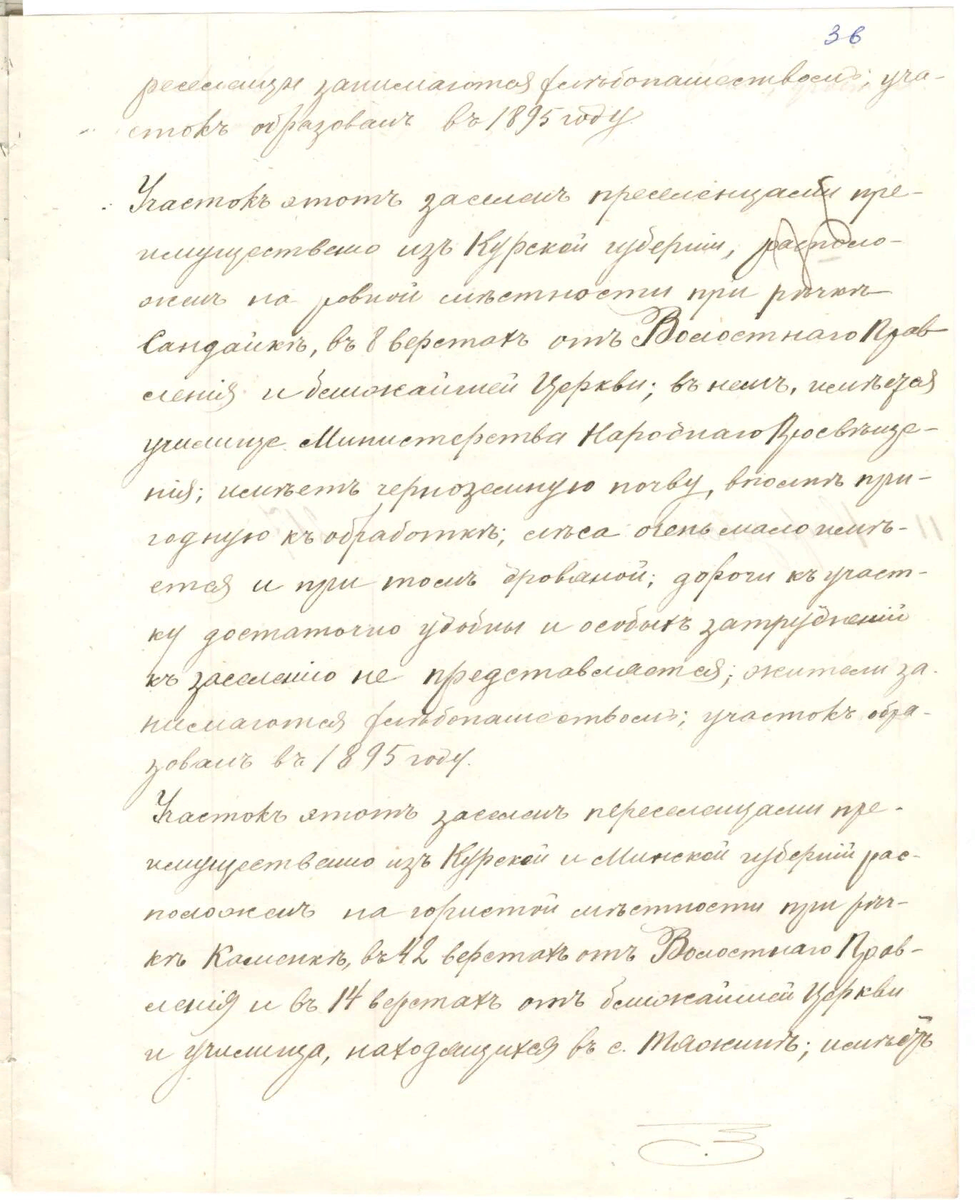 36
реселенцы занимаются хлѣбопашествомъ; уча-
стокъ образованъ въ 1895 году.
Участокъ этотъ заселенъ преселенцами пре-
имущественно изъ Курской губерніи, располо-
женъ на ровной мѣстности при рѣчкѣ
Сандайкѣ, въ 8 верстахъ отъ Волостнаго Прав
ленія и ближайшей Церкви; въ немъ, имѣется
училище Министерства Народнаго Просвѣще-
нія; имѣетъ черноземную почву, вполнѣ при-
годную къ обработкѣ; лѣса очень мало имѣ-
ется и при томъ дровяной; дороги къ участ-
ку достаточно удобны и особыхъ затрудненій
къ заселенію не представляется; жители за-
нимаются хлѣбопашествомъ; участокъ обра-
зованъ въ 1895 году.
Участокъ этотъ заселенъ переселенцами пре-
имущественно изъ Курской и Минской губерній рас-
положенъ на гористой мѣстности при рѣч-
кѣ Каменкѣ, въ 42 верстахъ отъ Волостнаго Прав-
ленія и въ 14 верстахъ отъ ближайшей Церкви
и училища, находящихся въ с. Тяжинѣ; имѣетъ